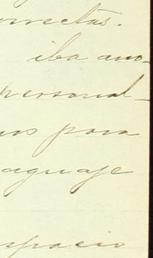 rrectas.
iba ano-
personal-
nos para
aguaje
spacio